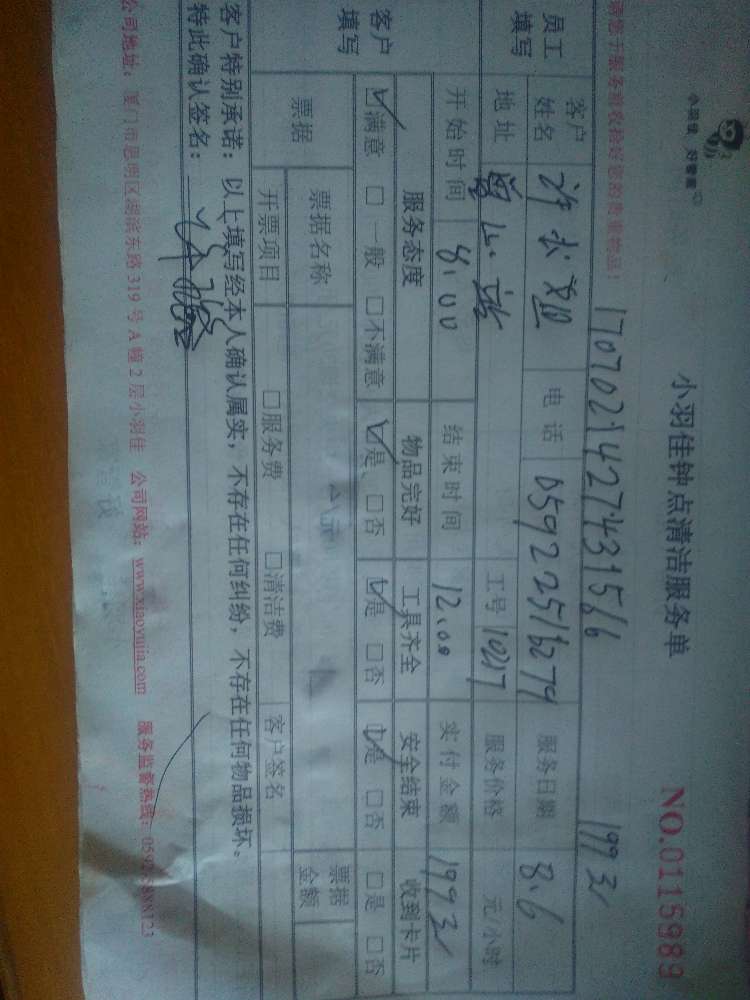 小羽佳，好管家
小羽佳钟点清洁服务单
NO.0115989
170702142743156
199元
员工填写
客户姓名
电话 0592 2516279
服务日期 8.6
地址
工号
服务价格 元/小时
开始时间 8:00 结束时间 12:00 实付金额 199元
客户填写
服务态度 物品完好 工具齐全 安全结束 收到卡片
☑满意 □一般 □不满意 ☑是 □否 ☑是 □否 ☑是 □否 □是 □否
票据 票据名称 票据金额
开票项目 □服务费 □清洁费 客户签名
客户特别承诺：以上填写经本人确认属实，不存在任何纠纷，不存在任何物品损坏。
特此确认签名：
公司地址：厦门市思明区湖滨东路319号A幢2层小羽佳 公司网站：www.xiaoyujia.com 服务监督热线：